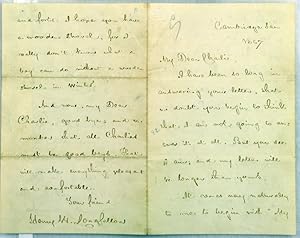 Cambridge Jan
1867
My Dear Charlie
I have been so long in
answering your letter, that
no doubt you begin to think
that I am not going to ans
wer it at all. But you see
I am, and my letter will
be longer than yours.
It comes very naturally
to me to begin with "My
and forts. I hope you have
a wooden shovel, for I
really don't know what a
boy can do without a wooden
shovel in Winter.
And now, my Dear
Charlie, good bye, and re
member that all Charlies
must be good boys. That
will make everything pleasant
and comfortable.
Your friend
Henry W. Longfellow